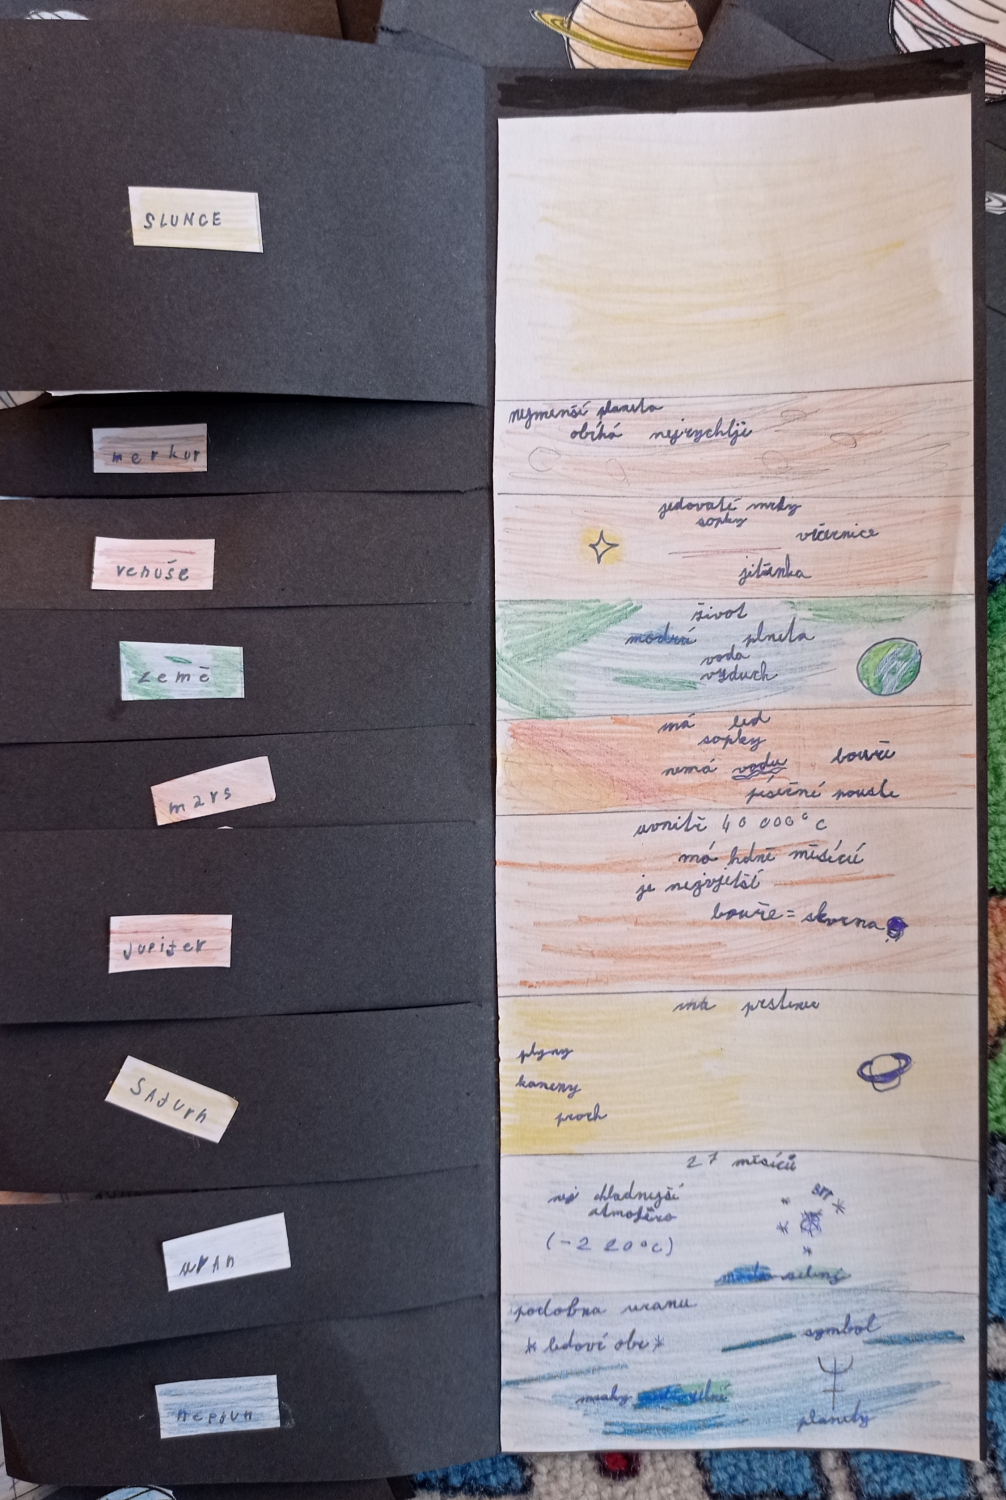 SLUNCE
merkur
venuše
země
mars
jupiter
SATURN
uran
neptun
nejmenší planeta
obíhá nejrychlji
jedovaté mraky
sopky
večernice
jitřenka
život
modrá plneta
voda
vzduch
má led
sopky
nemá vodu bouře
písečné pouště
uvnitř 40 000°C
má hdně měsíců
je nejvjetší
bouře = skvrna
má prstenec
plyny
kameny
proch
27 měsíců
nej chladnejší
atmosféra
(-220°C)
modro zelený
podobna uranu
ledové obr
symbol
mraky
planety